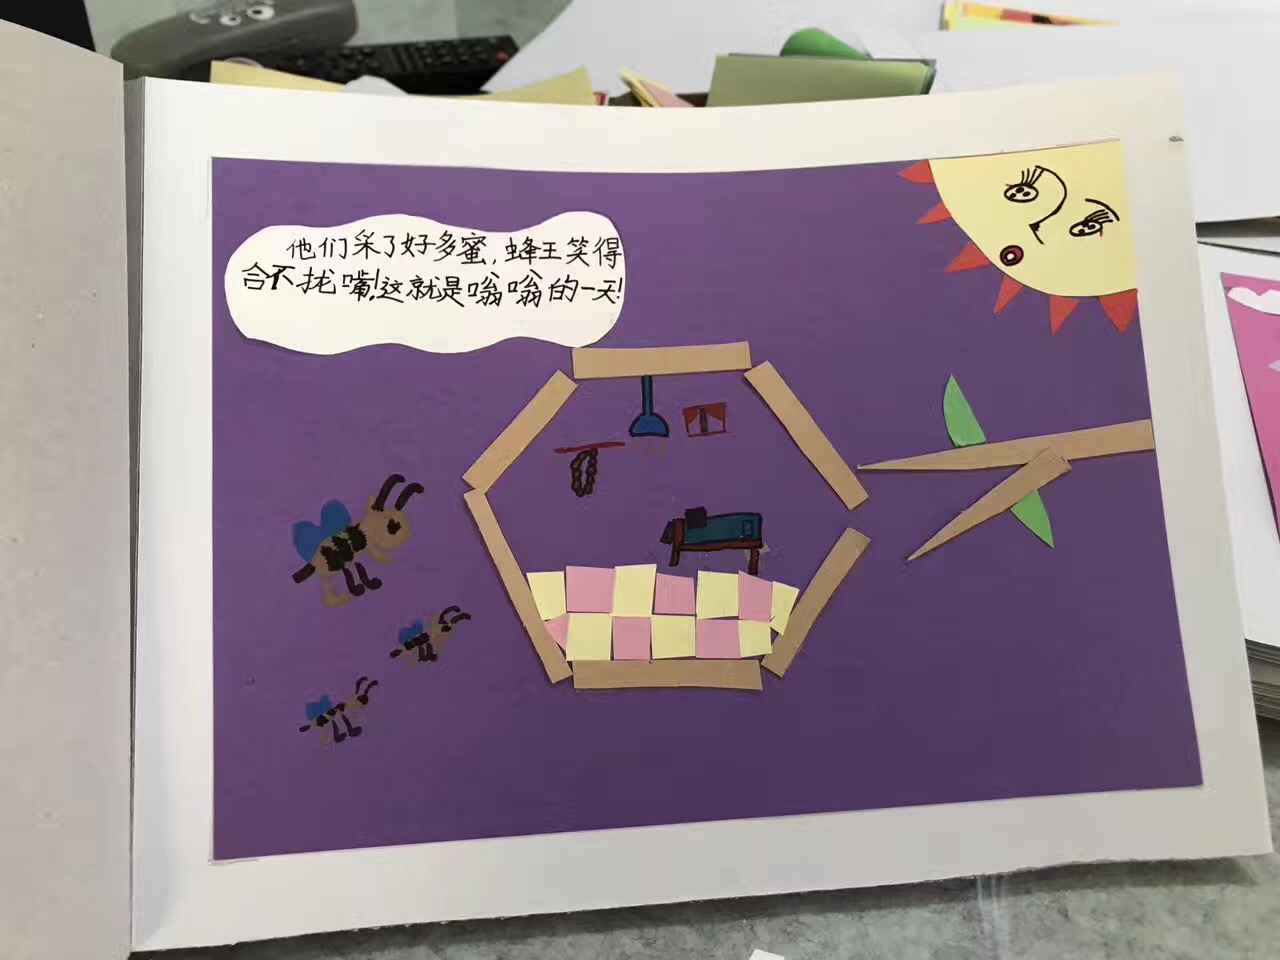 他们采了好多蜜,蜂王笑得
合不拢嘴!这就是嗡嗡的一天!